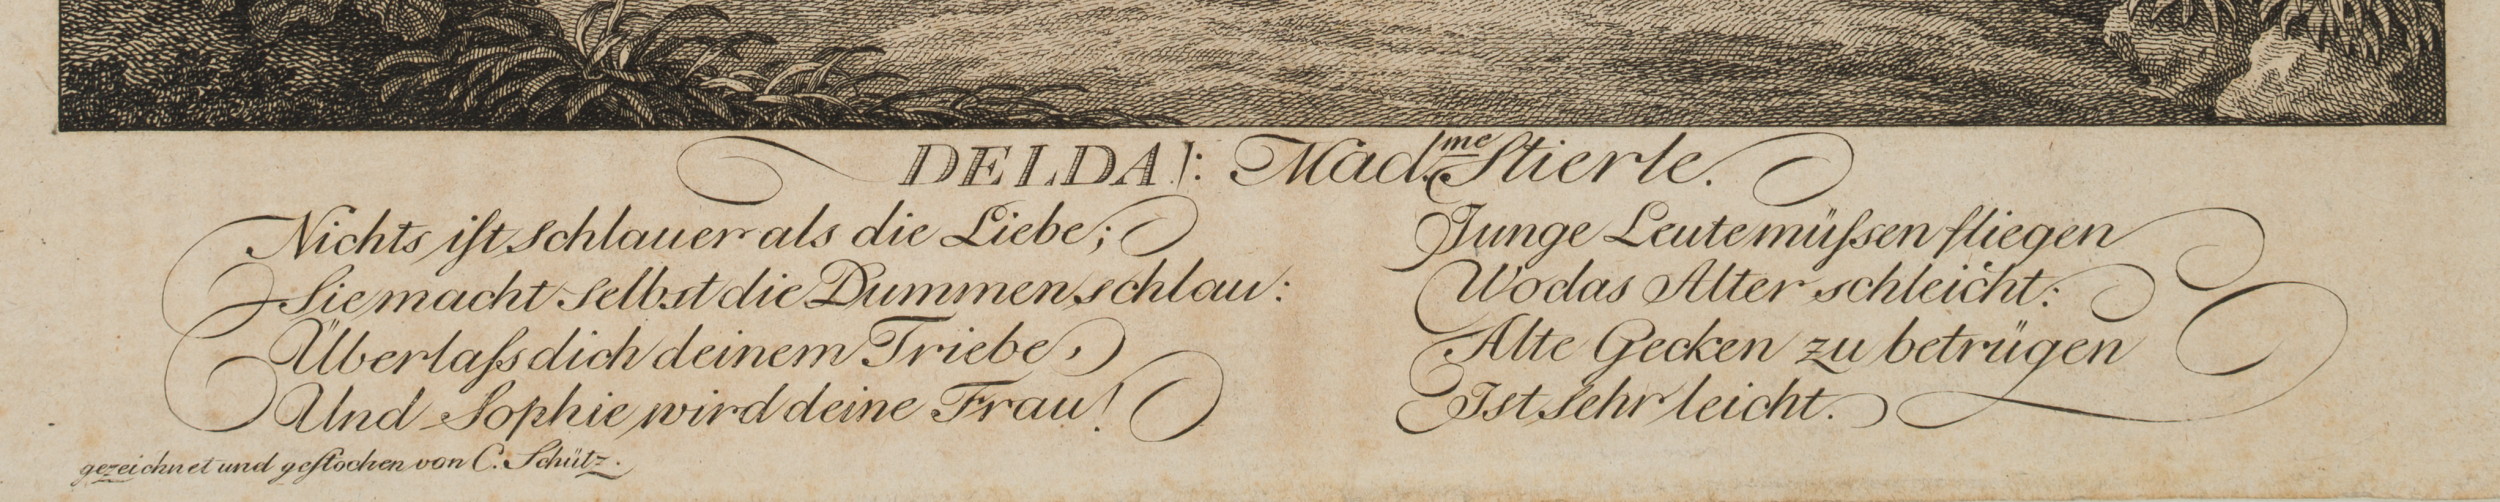 DELDA!: Mad.me Stierle.
Nichts iſt schlauer als die Liebe;
Sie macht selbst die Dummen schlau:
Überlaſs dich deinem Triebe,
Und Sophie wird deine Frau!
Junge Leute müſsen fliegen
Wo das Alter schleicht:
Alte Gecken zu betrügen
Ist sehr leicht.
gezeichnet und geſtochen von C. Schütz.